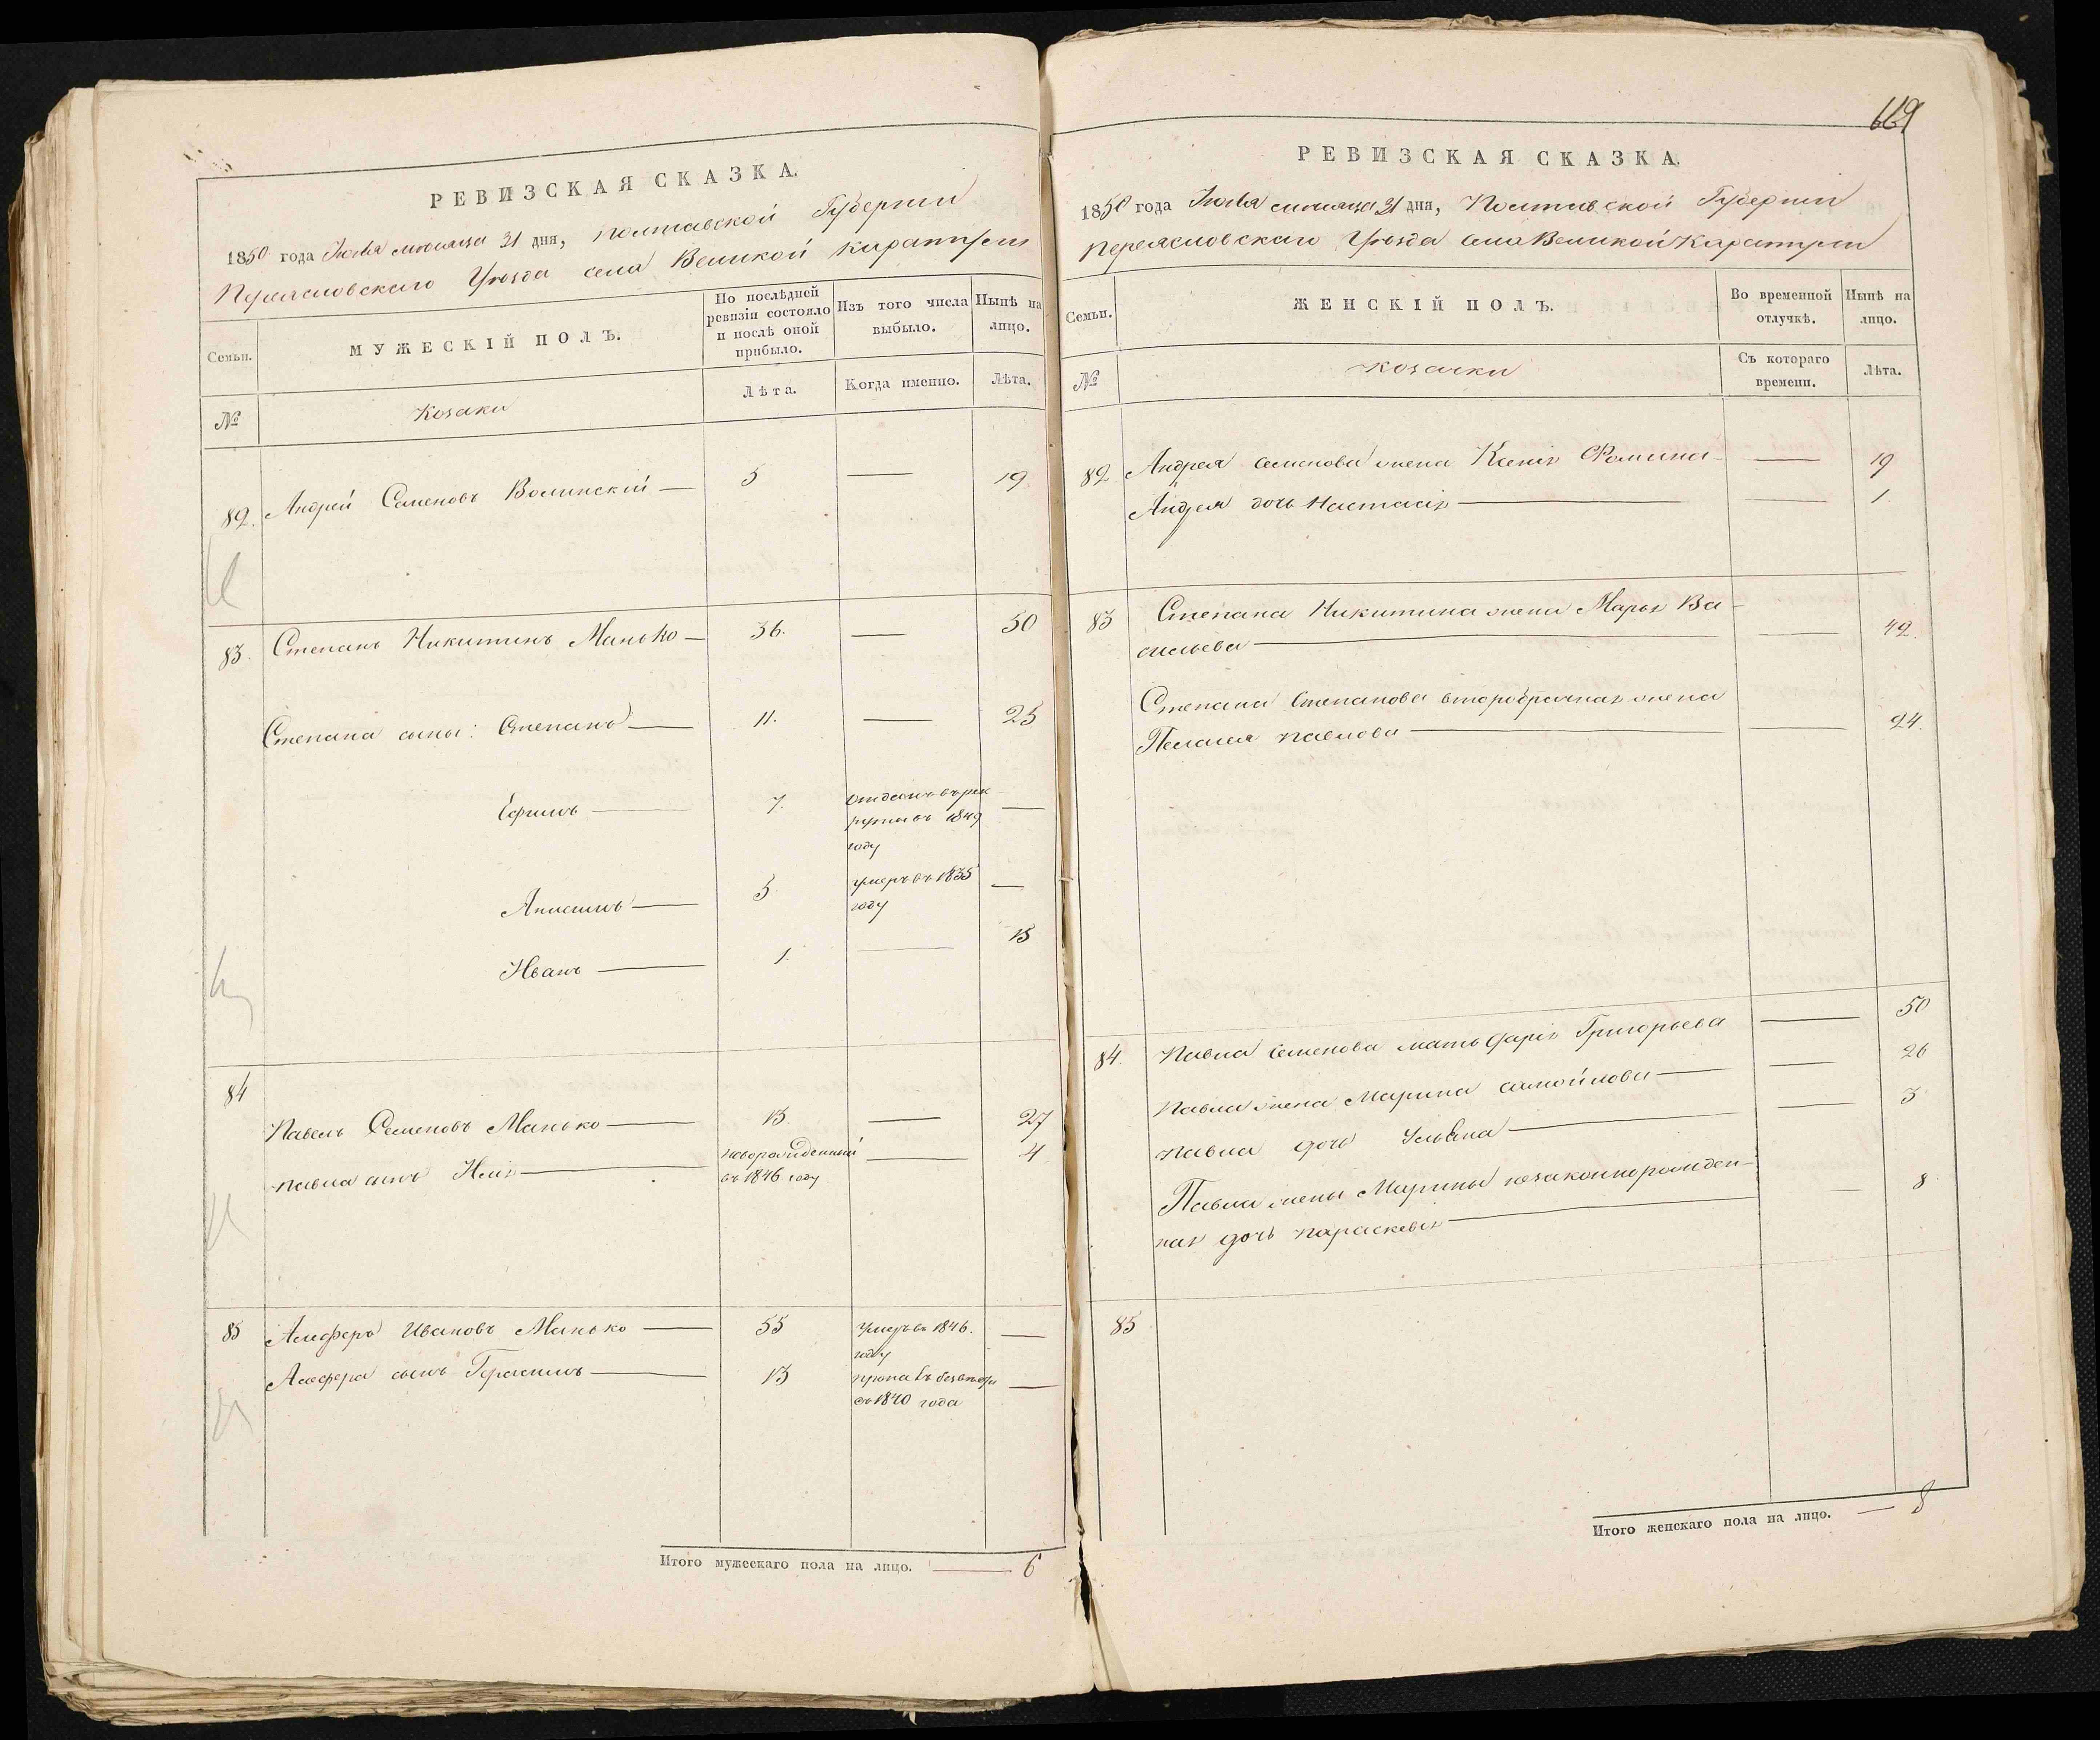 РЕВИЗСКАЯ СКАЗКА.
1850 года Июля месяца 31 дня, Полтавской Губерніи
Переясловского Уезда села Великой Каратули
Семьи.
МУЖЕСКІЙ ПОЛЪ.
По послѣдней ревизіи состояло и послѣ оной прибыло.
Изъ того числа выбыло.
Нынѣ на лицо.
№
Козаки
Лѣта.
Когда именно.
Лѣта.
82. Андрей Семеновъ Волинскій — 5 — 19
83. Степанъ Никитинъ Манько — 36. — 50
Степана сыны: Степанъ — 11. — 25
Ефимъ — 7. отданъ въ рек
руты въ 1849 —
году
Анисимъ — 5 умеръ въ 1835 —
году
Иванъ — 1. — 15
84
Павелъ Семеновъ Манько — 13 — 27
Павла сынъ Илія — новорожденный — 4
въ 1846 году
85 Алефера Ивановъ Манько — 55 умеръ въ 1846. —
году
Алефера сынъ Герасимъ — 13 пропалъ безъ вести —
съ 1840 года
Итого мужескаго пола на лицо. — 6
669
РЕВИЗСКАЯ СКАЗКА.
1850 года Июля месяца 31 дня, Полтавской Губерніи
Переясловского Уезда села Великой Каратули
Семьи.
ЖЕНСКІЙ ПОЛЪ.
Во временной отлучкѣ.
Нынѣ на лицо.
№
Козачки
Съ котораго времени.
Лѣта.
82 Андрея Семенова жена Ксенія Фомина — 19
Андрея дочь Настасія — 1
83 Степана Никитина жена Марья Ва-
сильева — 49
Степана Степанова второбрачная жена
Пелагея Павлова — 24.
84. Павла Семенова мать Дарія Григорьева — 50
Павла жена Марина Самойлова — 26
Павла дочь Ульяна — 3
Павла жены Марины незаконнорожден-
ная дочь Параскевія — 8
85
Итого женскаго пола на лицо. — 8